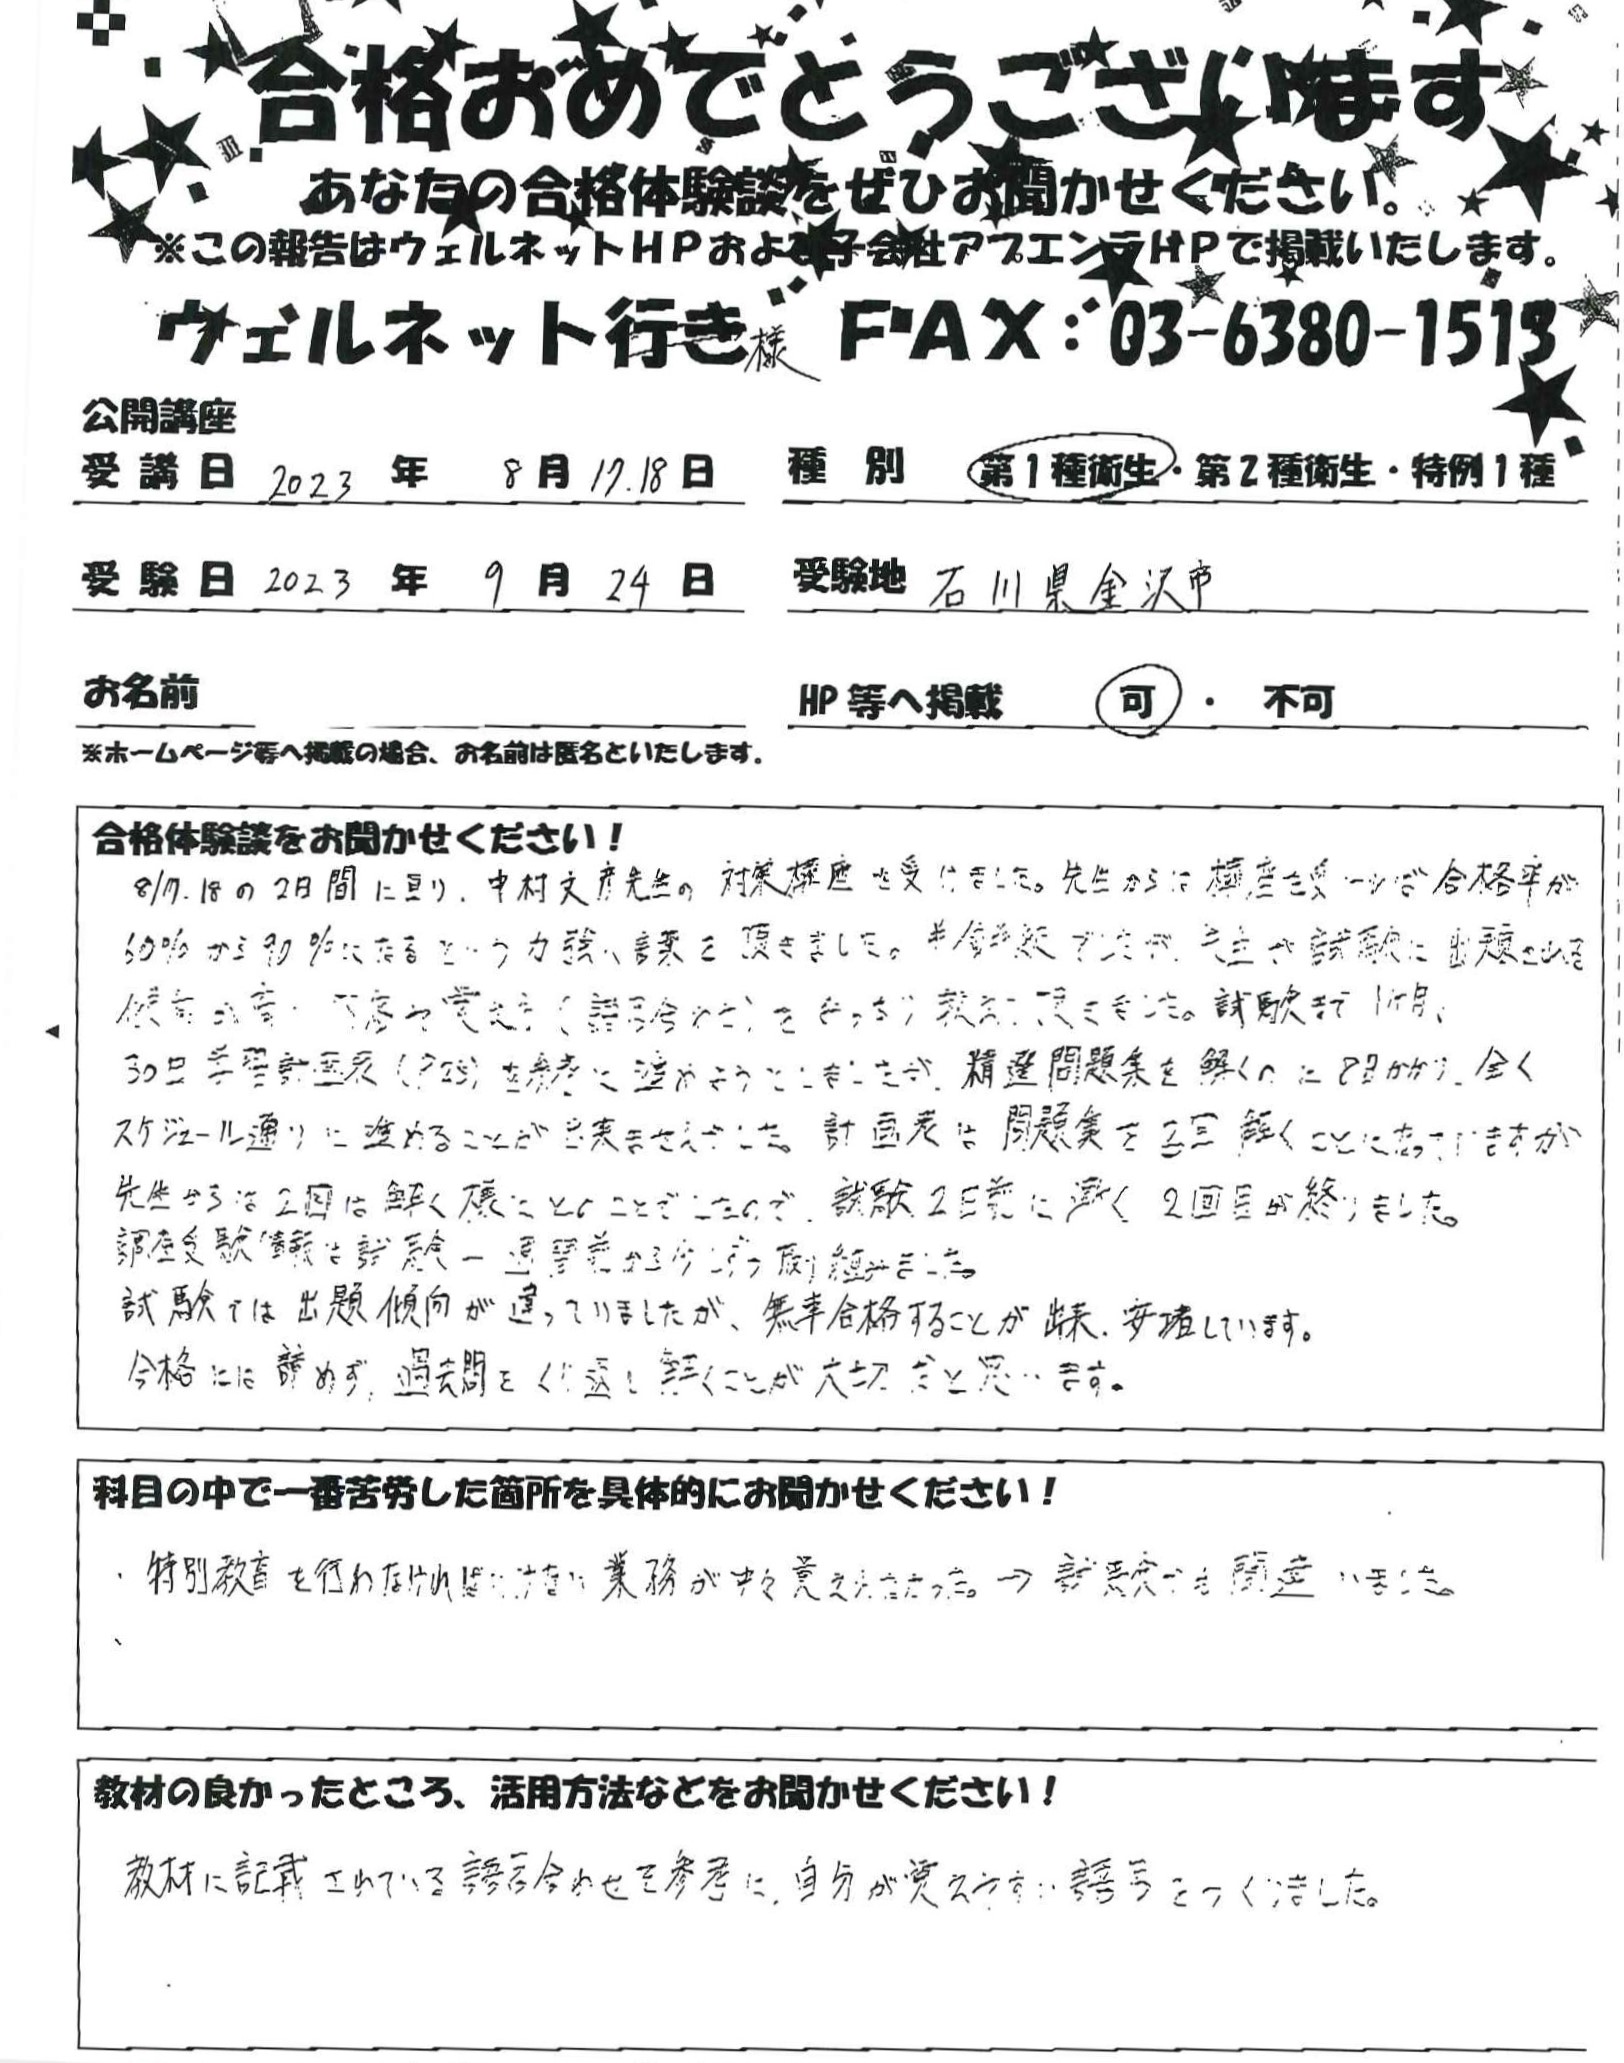 合格おめでとうございます
あなたの合格体験談をぜひお聞かせください。
※この報告はウェルネットHPおよび子会社アプエンテHPで掲載いたします。
ウェルネット行き様 FAX:03-6380-1513
公開講座
受講日 2023 年 8 月 17.18 日 種別 第1種衛生・第2種衛生・特例1種
受験日 2023 年 9 月 24 日 受験地 石川県金沢市
お名前 HP等へ掲載 可・不可
※ホームページ等へ掲載の場合、お名前は匿名といたします。
合格体験談をお聞かせください!
8/17.18の2日間に亘り、中村文彦先生の対策講座を受けました。先生からは講座を受ければ合格率が
60%から90%になるという力強い言葉を頂きました。半信半疑でしたが、先生が試験に出題される
傾向の高い内容や覚え方(語呂合わせ)をきっちり教えて頂きました。試験まで1ヶ月、
30日学習計画表(P23)を参考に進めようとしましたが、精選問題集を解くのに8日かかり、全く
スケジュール通りに進めることが出来ませんでした。計画表は問題集を3回解くことになっていますが
先生からは2回は解く様にとのことでしたので、試験2日前に漸く2回目が終りました。
講座受験情報は試験一週間前から少しずつ取り組みました。
試験では出題傾向が違っていましたが、無事合格することが出来、安堵しています。
合格には諦めず、過去問をくり返し解くことが大切だと思います。
科目の中で一番苦労した箇所を具体的にお聞かせください!
・特別教育を行わなければいけない業務が中々覚えれなかった。→試験でも間違いました。
教材の良かったところ、活用方法などをお聞かせください!
教材に記載されている語呂合わせを参考に、自分が覚えやすい語呂をつくりました。